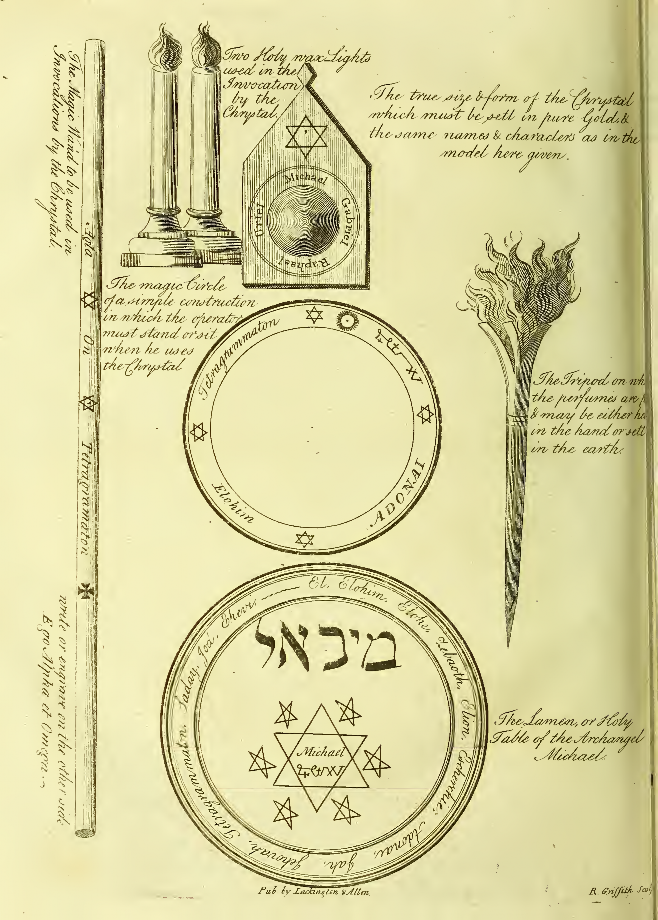 The Magic Wand to be used in
Invocations by the Chrystal
Agla
On
Tetragrammaton
write or engrave on the other side
Ego Alpha et Omega
Two Holy wax Lights
used in the
Invocation
by the
Chrystal,
Michael
Gabriel
Raphael
Uriel
The true size & form of the Chrystal
which must be sett in pure Gold, &
the same names & characters as in the
model here given.
The magic Circle
of a simple construction
in which the operator
must stand or sit
when he uses
the Chrystal
Tetragrammaton
ADONAI
Elohim
The Tripod on
the perfumes are
& may be either
in the hand or sett
in the earth.
El. Elohim. Elohe. Zebaoth. Elion. Adonai. Jah. Jehovah. Tetragrammaton. Saday. Jod.
מיכאל
Michael
The Lamen, or Holy
Table of the Archangel
Michael.
Pub by Lackington & Allen.
R Griffith